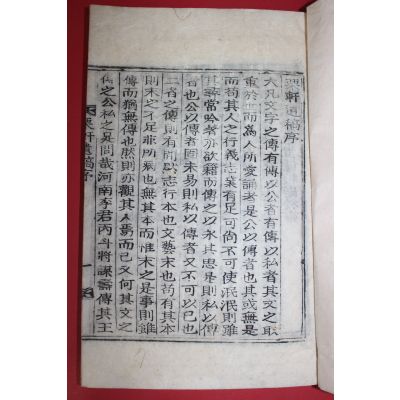 軒遺稿序
大凡文字之傳有傳以公者有傳以私者其文之取
重於世而為人所愛誦者是公以傳者也其或無是
而苟其人之行義志業有足可尚不可使泯泯則雖
其尋常吟者亦欲藉而傳之以永其思是則私以傳
者也公以傳者固未易則私以傳者又不可以已也
二者之傳則有間然志行本也文藝末也苟有其本
則末之不足非所病也無其本而惟末之是事則雖
傳而猶無傳也然則亦觀其人焉而已又何其文之
傳之公私之足問哉河南李君丙斗將謀壽傳其王
軒遺稿序
一